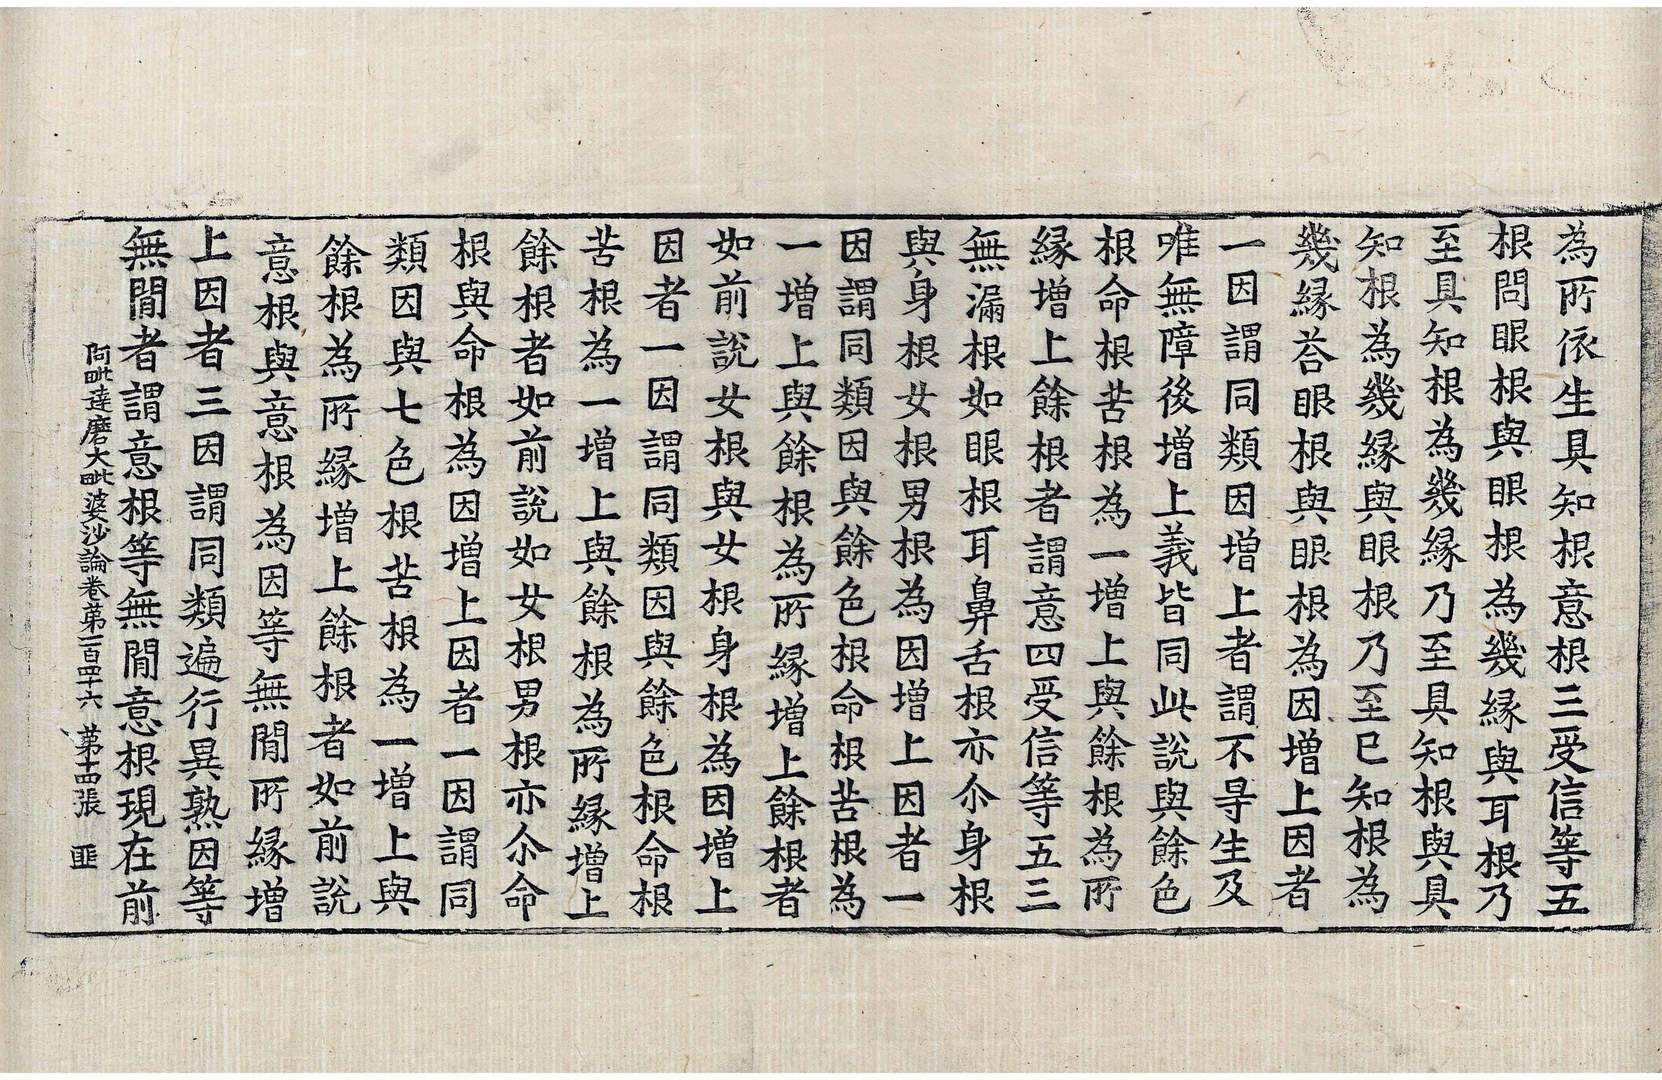 為所依生具知根意根三受信等五
根問眼根與眼根為幾縁與耳根乃
至具知根為幾縁乃至具知根與具
知根為幾縁與眼根乃至已知根為
幾縁荅眼根與眼根為因增上因者
一因謂同類因增上者謂不㝵生及
唯無障後增上義皆同此說與餘色
根命根苦根為一增上與餘根為所
縁增上餘根者謂意四受信等五三
無漏根如眼根耳鼻舌根亦尒身根
與身根女根男根為因增上因者一
因謂同類因與餘色根命根苦根為
一增上與餘根為所縁增上餘根者
如前說女根與女根身根為因增上
因者一因謂同類因與餘色根命根
苦根為一增上與餘根為所縁增上
餘根者如前說如女根男根亦尒命
根與命根為因增上因者一因謂同
類因與七色根苦根為一增上與
餘根為所縁增上餘根者如前說
意根與意根為因等無閒所縁增
上因者三因謂同類遍行異熟因等
無閒者謂意根等無閒意根現在前
阿毗達磨大毗婆沙論卷第一百四十六 第十四張 匪